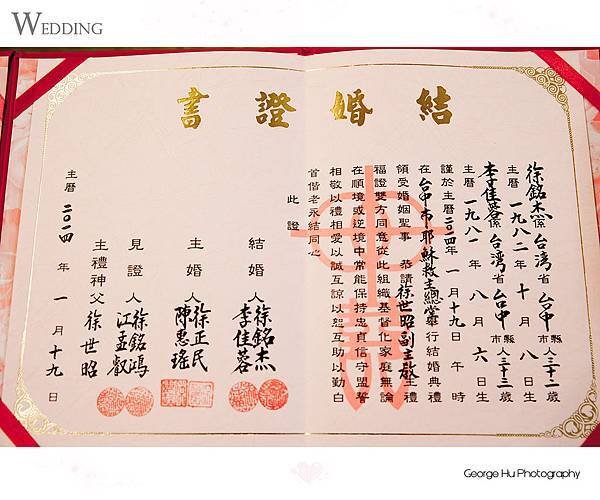 WEDDING
結婚證書
徐銘杰係台灣省台中市縣人三十二歲
主曆一九八二年十月八日生
李佳蓉係台湾省台中市縣人三十三歲
主曆一九八一年八月六日生
謹於主曆二〇一四年一月十九日午時
在台中市耶穌救主總堂舉行結婚典禮
領受婚姻聖事恭請徐世昭副主教主禮
福證雙方同意從此組織基督化家庭無論
在順境或逆境中常能保持忠貞信守盟誓
相敬以禮相愛以誠互諒以恕互助以勤白
首偕老永結同心
此證
結婚人徐銘杰
李佳蓉
主婚人徐正民
陳惠瑤
見證人徐銘鴻
江孟叡
主禮神父徐世昭
主曆二〇一四年一月十九日
George Hu Photography